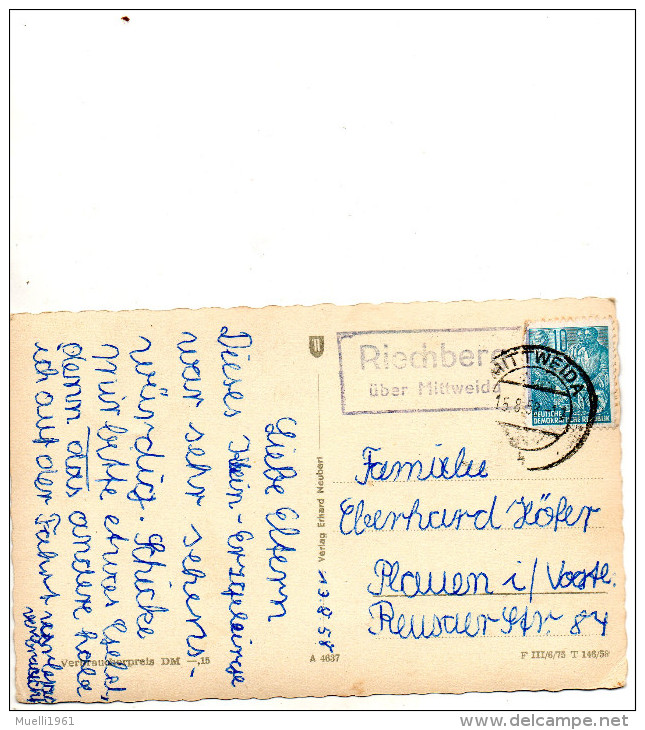 Riechberg
über Mittweida
MITTWEIDA
15.8.
10
DEUTSCHE
DEMOKRATISCHE REPUBLIK
Familie
Eberhard Höfer
Plauen i/Vogtl.
Reusaer Str. 84
13.8.58
Liebe Eltern
Dieses Klein-Erzgebirge
war sehr sehens-
würdig. Schicke
mir bitte etwas Geld,
denn das andere habe
ich auf der Fahrt
Verlag Erhard Neubert
Verbraucherpreis DM —,15
A 4637
F III/6/75 T 146/58
Muelli1961
www.delcampe.net